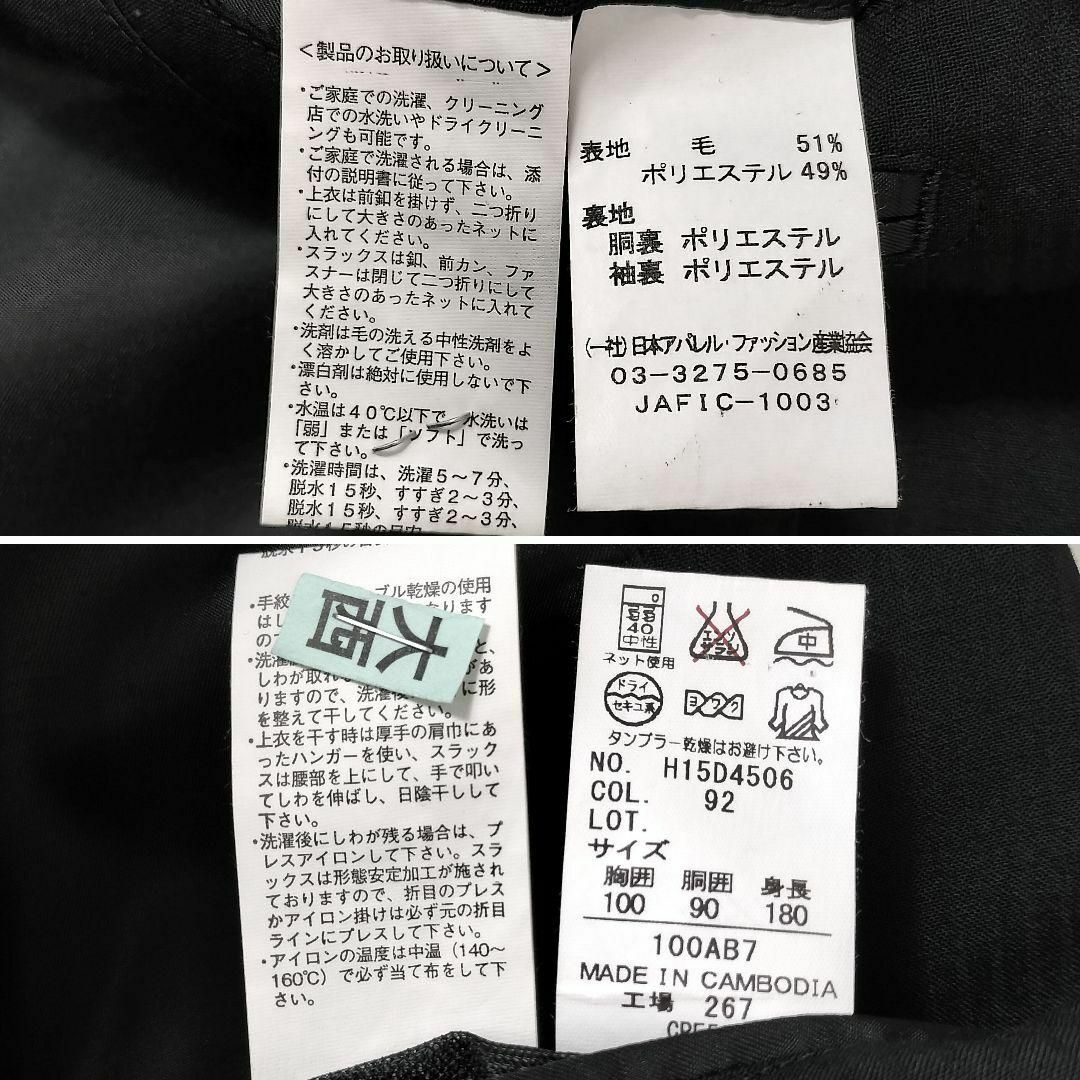 <製品のお取り扱いについて>
・ご家庭での洗濯、クリーニング
店での水洗いやドライクリーニ
ングも可能です。
・ご家庭で洗濯される場合は、添
付の説明書に従って下さい。
・上衣は前釦を掛けず、二つ折り
にして大きさのあったネットに
入れてください。
・スラックスは釦、前カン、ファ
スナーは閉じて二つ折りにして
大きさのあったネットに入れて
ください。
・洗剤は毛の洗える中性洗剤をよ
く溶かしてご使用下さい。
・漂白剤は絶対に使用しないで下
さい。
・水温は40℃以下で 水洗いは
「弱」または「ソフト」で洗っ
て下さい。
・洗濯時間は、洗濯5～7分、
脱水15秒、すすぎ2～3分、
脱水15秒、すすぎ2～3分、
脱水15秒の目安
表地 毛 51%
ポリエステル 49%
裏地
胴裏 ポリエステル
袖裏 ポリエステル
(一社)日本アパレル・ファッション産業協会
03-3275-0685
JAFIC-1003
脱水15秒の目安
・手絞 ブル乾燥の使用
はし ります
ので
・洗濯
しわが取れ があ
りますので、洗濯後 に形
を整えて干してください。
・上衣を干す時は厚手の肩巾にあ
ったハンガーを使い、スラック
スは腰部を上にして、手で叩い
てしわを伸ばし、日陰干しして
下さい。
・洗濯後にしわが残る場合は、プ
レスアイロンして下さい。スラ
ックスは形態安定加工が施され
ておりますので、折目のプレス
かアイロン掛けは必ず元の折目
ラインにプレスして下さい。
・アイロンの温度は中温(140～
160℃)で必ず当て布をして下
さい。
大西
弱
40
中性
ネット使用
エンソ
サラシ
中
ドライ
セキユ系
ヨワク
タンブラー乾燥はお避け下さい。
NO. H15D4506
COL. 92
LOT.
サイズ
胸囲 胴囲 身長
100 90 180
100AB7
MADE IN CAMBODIA
工場 267